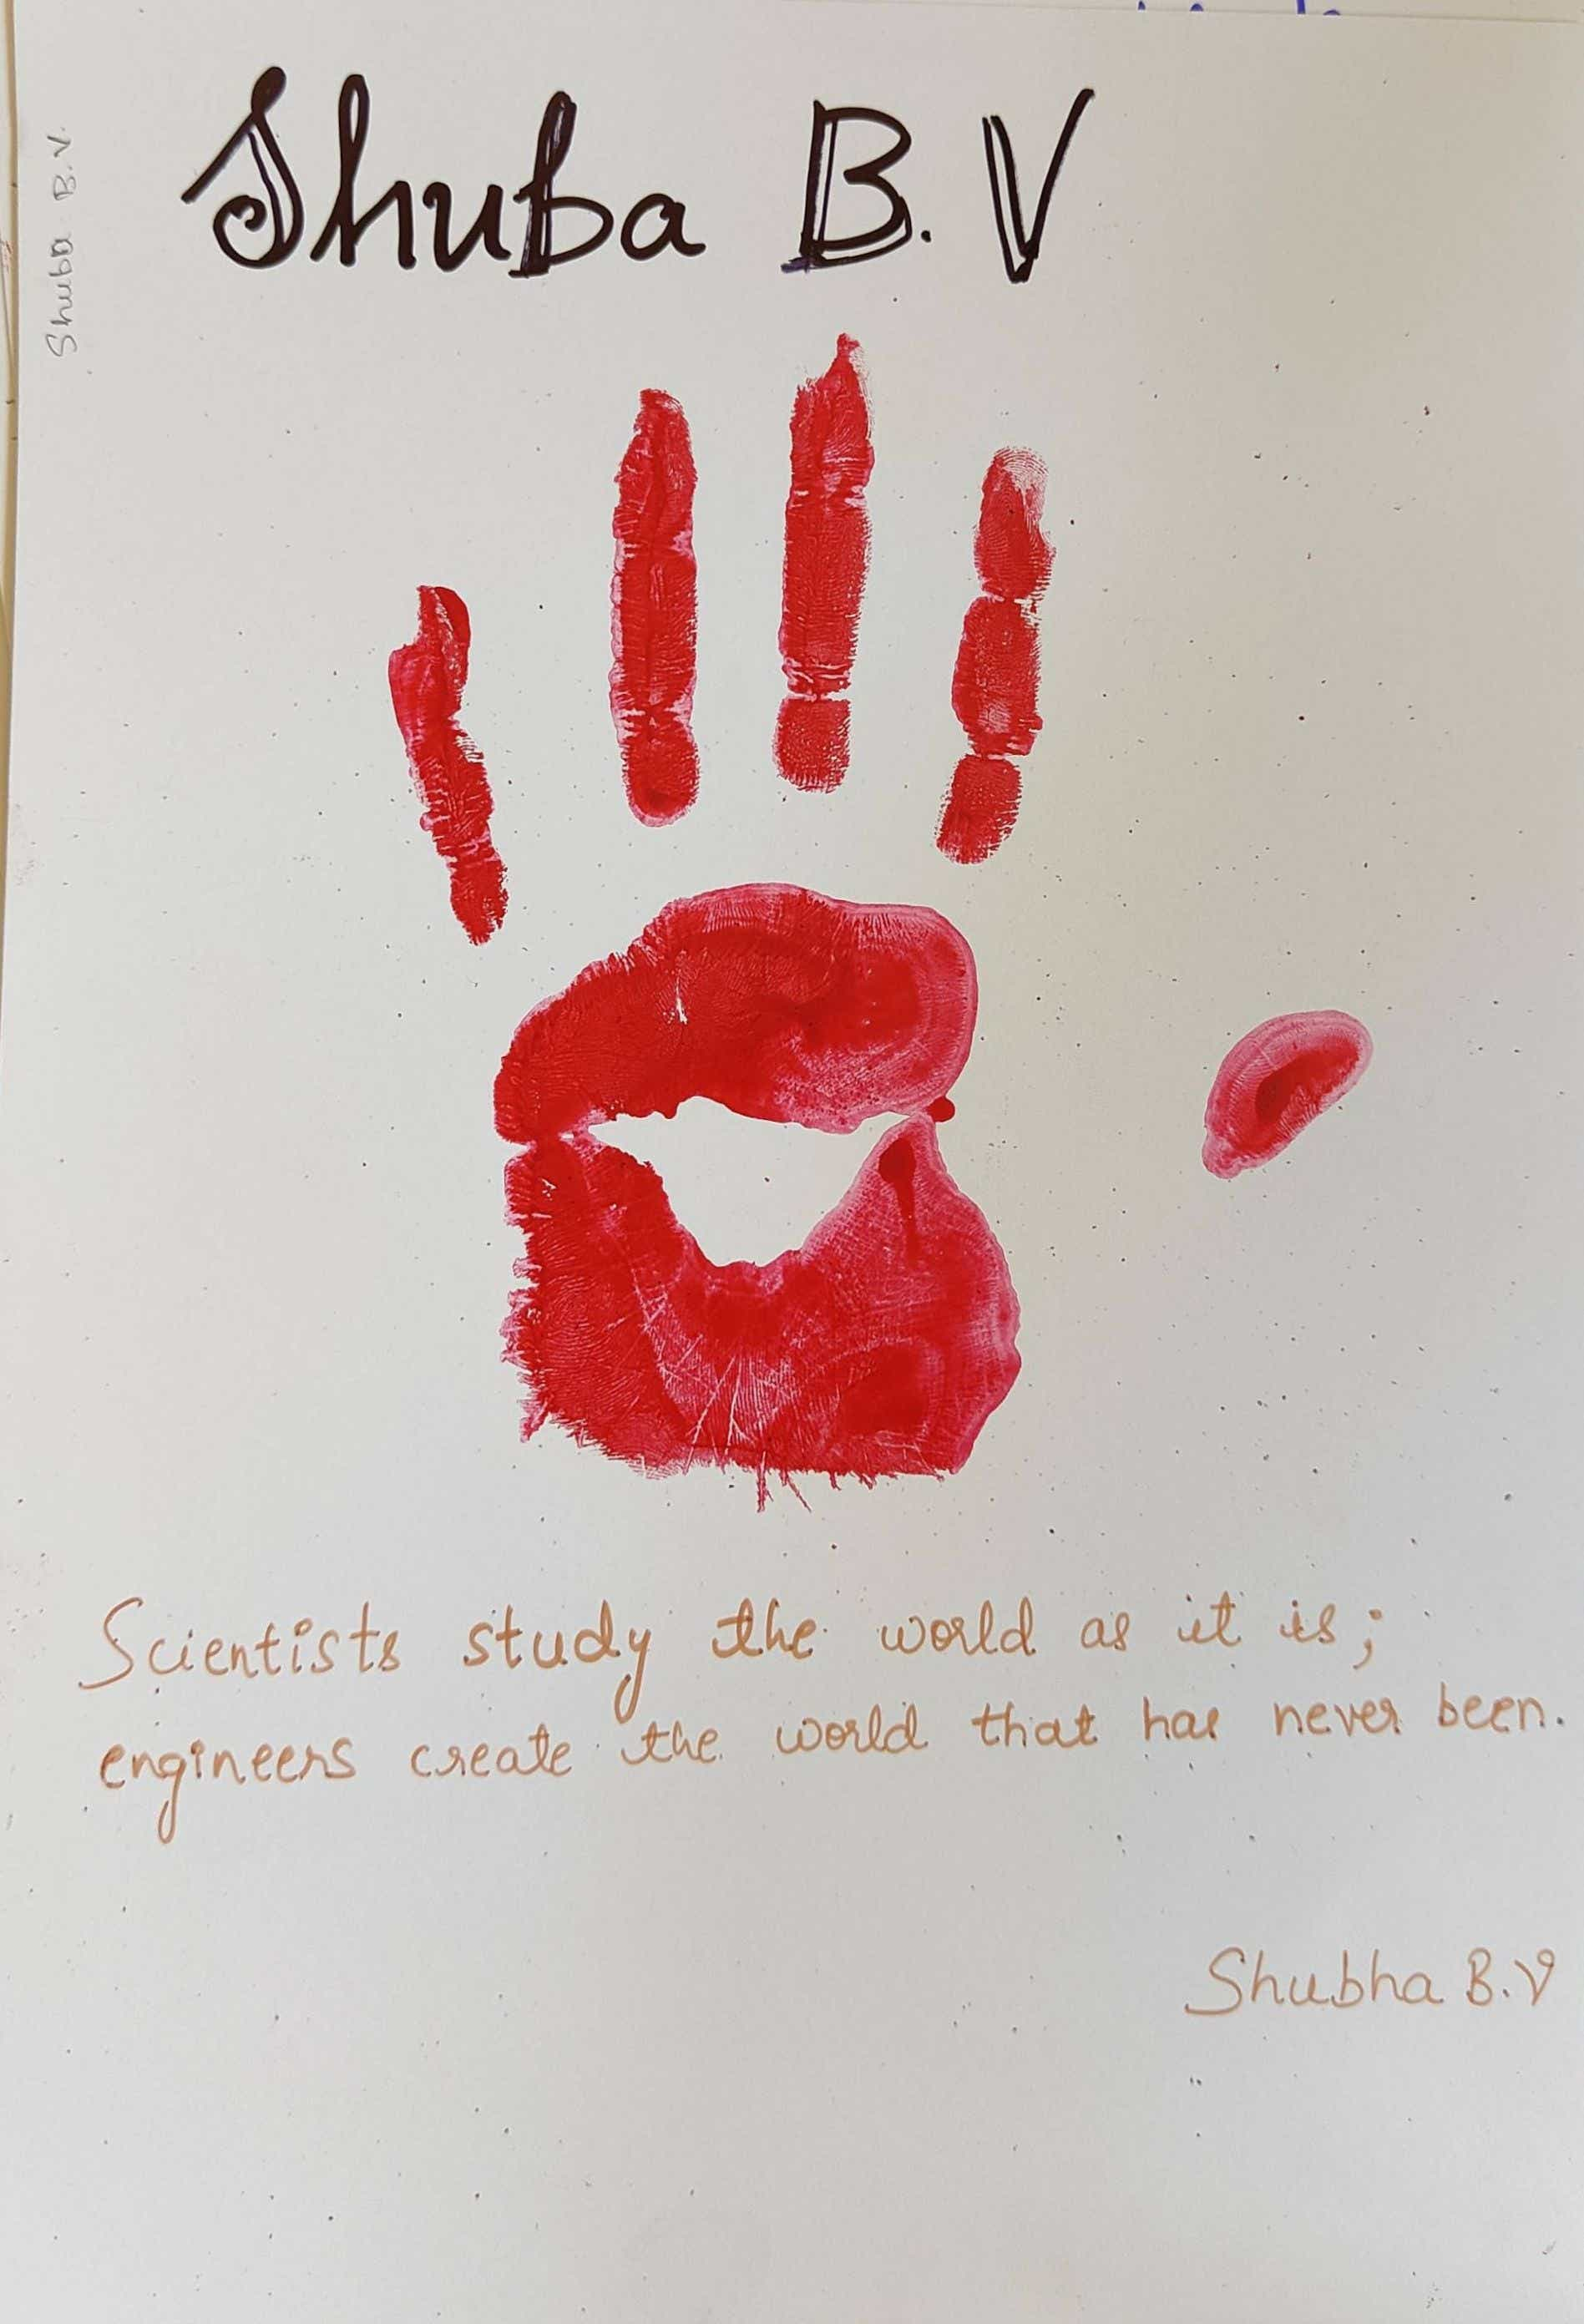 Shuba B.V
Shuba B.V.
Scientists study the world as it is;
engineers create the world that has never been.
Shubha B.V